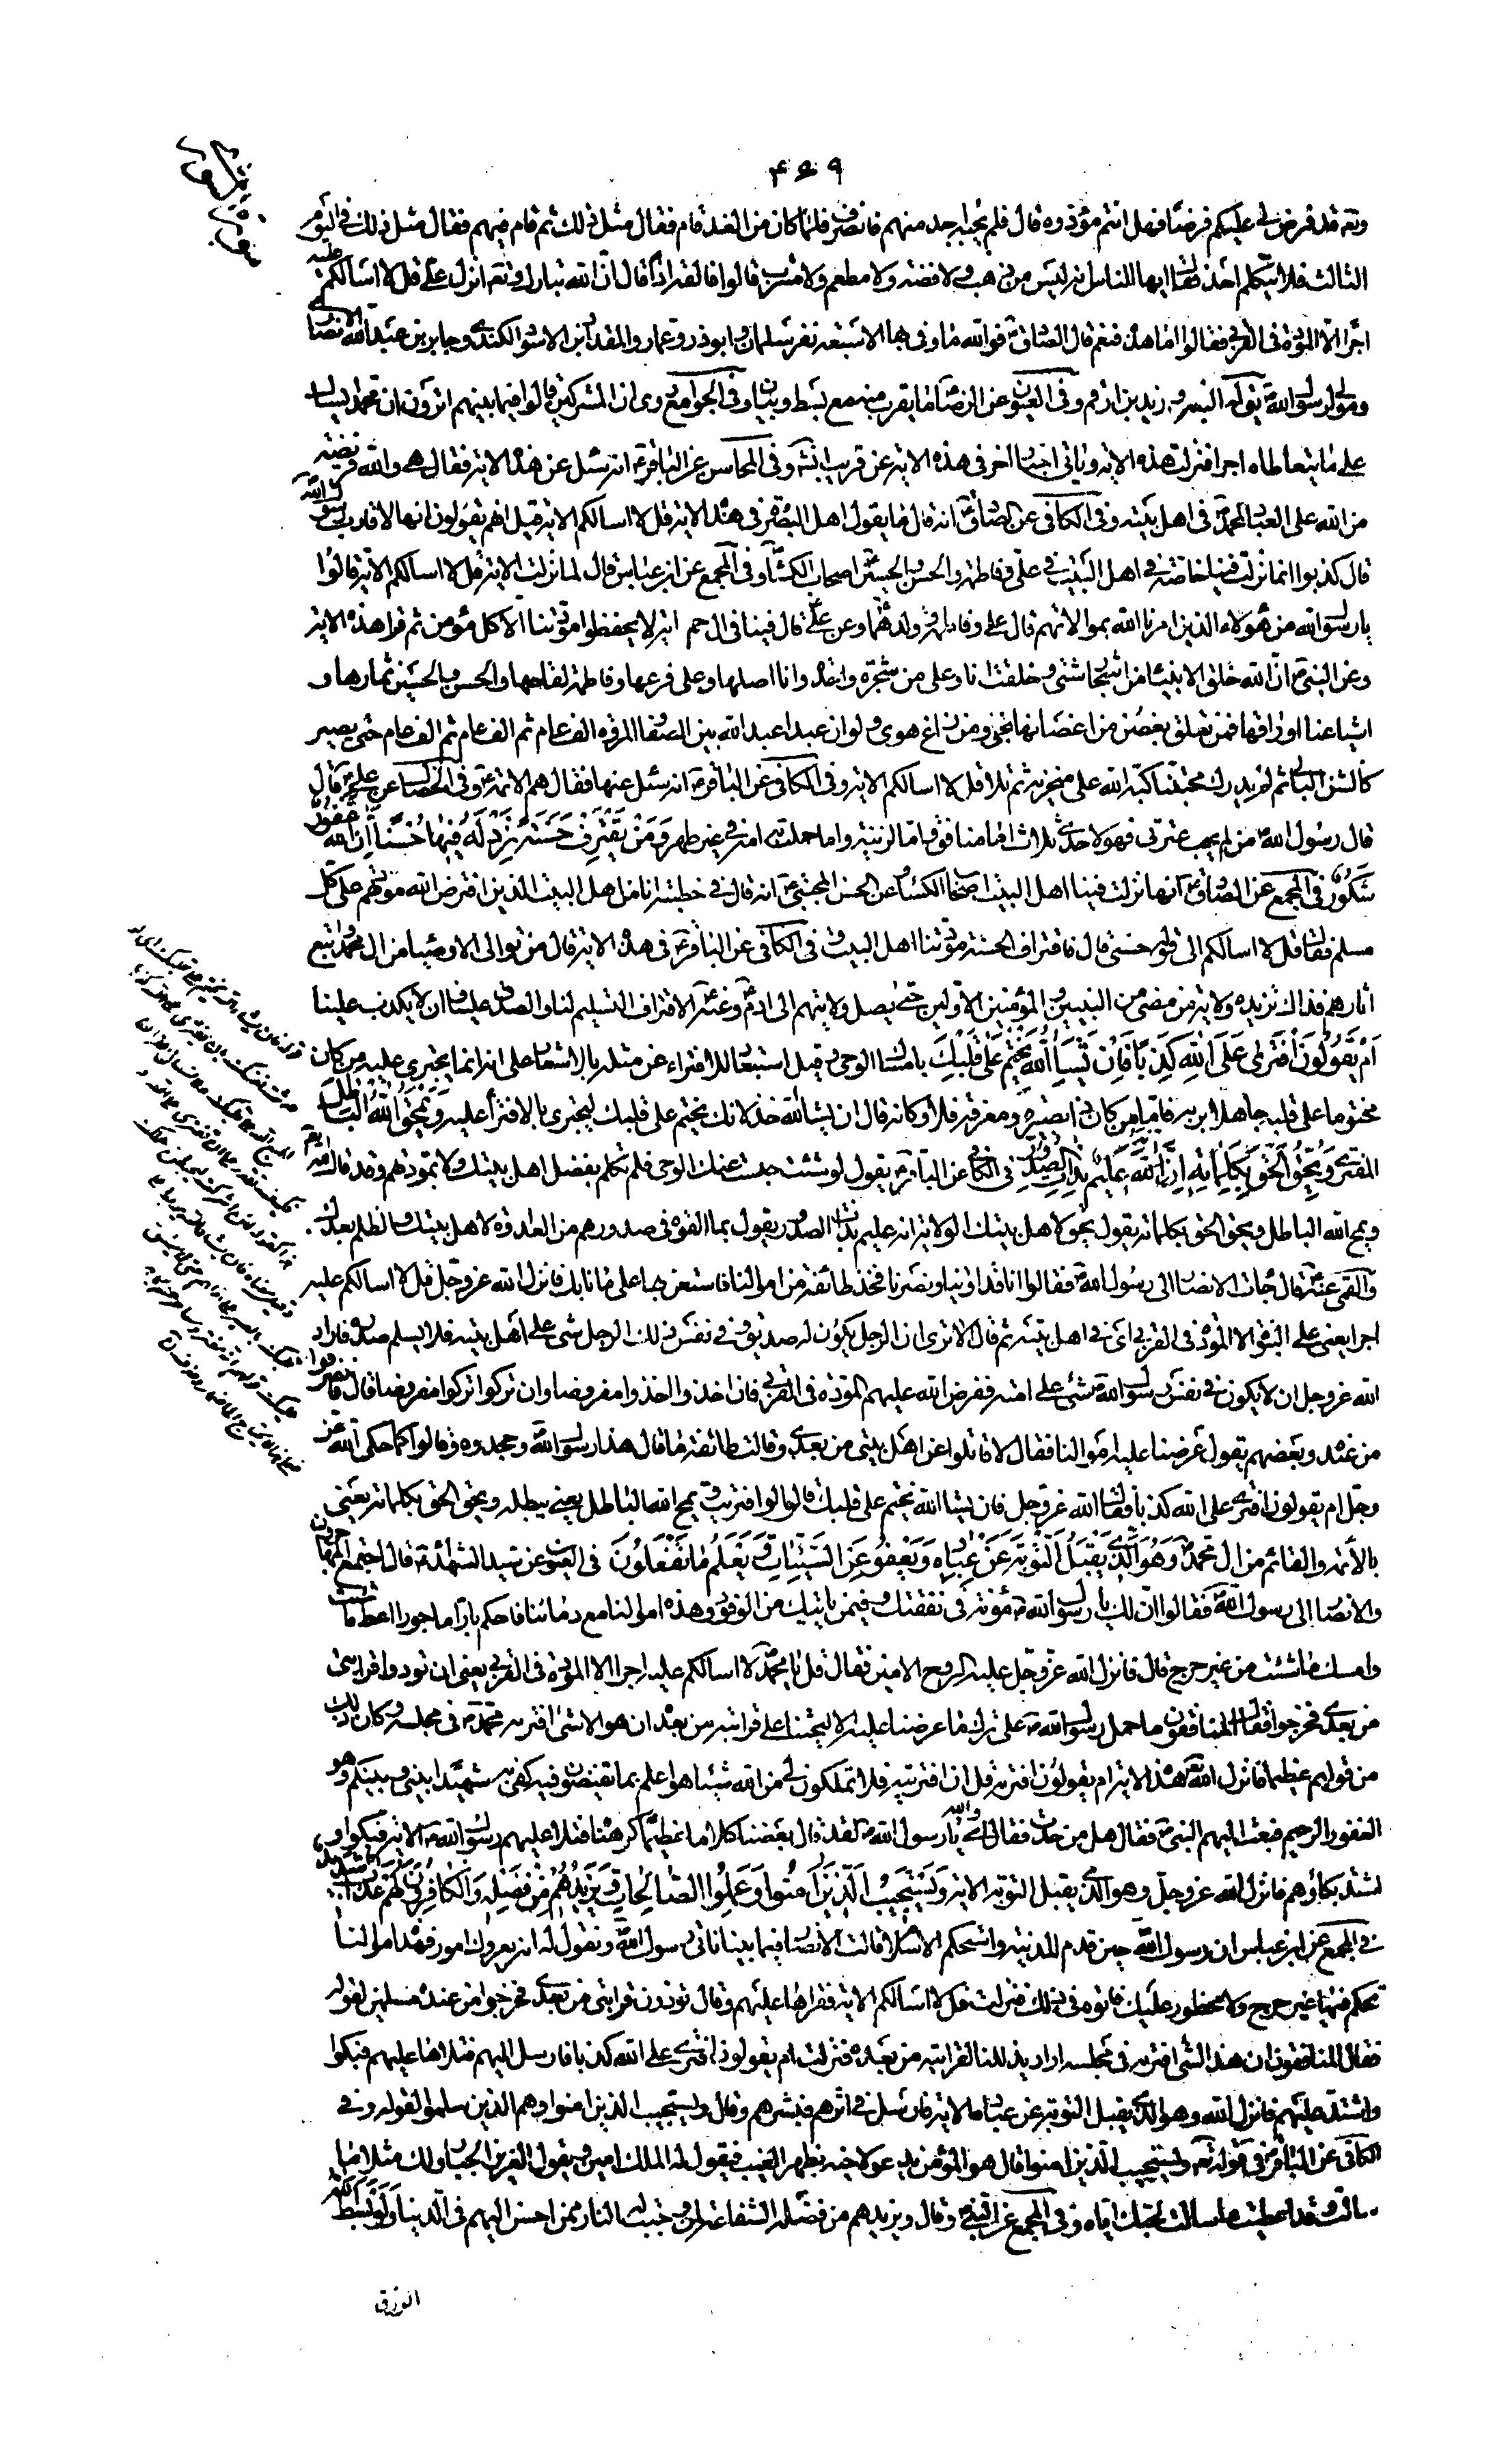 ۴۵۹
وتعه قد فرض لى عليكم فرضا فهل انتم مؤدوه قال فلم يجبه احد منهم فانصرف فلما كان من الغد قام فقال مثل ذلك ثم قام فيهم فقال مثل ذلك فى اليوم
الثالث فلم يتكلم احد فقال ايها الناس انه ليس من ذهب ولا فضة ولا مطعم ولا مشرب قالوا فالقه اذا قال ان الله تبارك وتعه انزل على قل لا اسالكم عليه
اجرا الا المودة فى القربى فقالوا اما هذه فنعم قال الصادق فوالله ما وفى بها الا سبعة نفر سلمان وابو ذر وعمار والمقداد ابن الاسود الكندى وجابر بن عبد الله الانصارى
ومولى لرسول الله يقال له وزيد بن ارقم وفى العيون عن الرضا ما يقرب منه مع بسط وبيان وفى الجوامع روى ان المشركين قالوا فيما بينهم اترون ان محمدا يسال
على ما يتعاطاه اجرا فنزلت هذه الاية وياتى اخبار اخر فى هذه الاية عن قريب انشه وفى المحاسن عن الباقر انه سئل عن هذه الاية فقال هى والله فريضة
من الله على العباد لمحمد فى اهل بيته وفى الكافى عن الصادق انه قال ما يقول اهل البصرة فى هذه الاية قل لا اسالكم الاية قيل انهم يقولون انها لاقارب رسول الله
قال كذبوا انما نزلت فينا خاصة فى اهل البيت فى على وفاطمة والحسن والحسين اصحاب الكساء وفى المجمع عن ابن عباس قال لما نزلت الاية قل لا اسالكم الاية قالوا
يا رسول الله من هؤلاء الذين امرنا الله بموالاتهم قال على وفاطمة وولدهما وعن على قال فينا فى ال حم اية لا يحفظ مودتنا الا كل مؤمن ثم قرا هذه الاية
وعن النبى ان الله خلق الانبياء من اشجار شتى وخلقت انا وعلى من شجرة واحدة وانا اصلها وعلى فرعها وفاطمة لقاحها والحسن والحسين ثمارها و
اشياعنا اوراقها فمن تعلق بغصن من اغصانها نجى ومن زاغ هوى ولو ان عبدا عبد الله بين الصفا والمروة الف عام ثم الف عام ثم الف عام حتى يصير
كالشن البالى ثم لم يدرك محبتنا كبه الله على منخريه ثم تلا قل لا اسالكم الاية وفى الكافى عن الباقر انه سئل عنها فقال هم الائمة وفى الخصال عن على قال
قال رسول الله من لم يحب عترتى فهو لاحدى ثلاث اما منافق واما لزنية واما حملت به امه فى غير طهر وَمَنْ يَقْتَرِفْ حَسَنَةً نَزِدْ لَهُ فِيهَا حُسْنًا إِنَّ اللهَ غَفُورٌ
شَكُورٌ فى المجمع عن الصادق انها نزلت فينا اهل البيت اصحاب الكساء وعن الحسن المجتبى انه قال فى خطبته انا من اهل البيت الذين افترض الله مودتهم على كل
مسلم فقال قل لا اسالكم الى قوله حسنى قال فاقتراف الحسنة مودتنا اهل البيت وفى الكافى عن الباقر فى هذه الاية قال من توالى الاوصياء من ال محمد واتبع
اثارهم فذاك نزيده ولاية من مضى من النبيين والمؤمنين الاولين حتى يصل ولايتهم الى ادم وعنه الاقتراف التسليم لنا والصدق علينا وان لا يكذب علينا
أَمْ يَقُولُونَ افْتَرَى عَلَى اللهِ كَذِبًا فَإِنْ يَشَأِ اللهُ يَخْتِمْ عَلَى قَلْبِكَ بامساك الوحى وقيل استبعاد للافتراء عن مثله بالاشعار على انه انما يجترى عليه من كان
مختوما على قلبه جاهلا بربه فاما من كان ذا بصيرة ومعرفة فلا وكانه قال ان يشا الله خذلانك يختم على قلبك لتجترى بالافتراء عليه وَيَمْحُ اللهُ الْبَاطِلَ
المفترى وَيُحِقُّ الْحَقَّ بِكَلِمَاتِهِ إِنَّهُ عَلِيمٌ بِذَاتِ الصُّدُورِ فى الكافى عن الباقر يقول لو شئت حبست عنك الوحى فلم تكلم بفضل اهل بيتك ولا بمودتهم وقد قال الله
ويمح الله الباطل ويحق الحق بكلماته يقول يحق لاهل بيتك الولاية انه عليم بذات الصدور يقول بما القوه فى صدورهم من العداوة لاهل بيتك والظلم بعدك
والقمى عنه قال جاءت الانصار الى رسول الله فقالوا انا قد اوينا ونصرنا فخذ طائفة من اموالنا فاستعن بها على ما نابك فانزل الله عز وجل قل لا اسالكم عليه
اجرا يعنى على النبوة الا المودة فى القربى اى فى اهل بيته ثم قال الا ترى ان الرجل يكون له صديق وفى نفس ذلك الرجل شى على اهل بيته فلا يسلم صدره فاراد
الله عز وجل ان لا يكون فى نفس رسول الله شى على امته ففرض الله عليهم المودة فى القربى فان اخذوا اخذوا مفروضا وان تركوا تركوا مفروضا قال فانصرفوا
من عنده وبعضهم يقول عرضنا عليه اموالنا فقال لا قاتلوا عن اهل بيتى من بعدى وقالت طائفة ما قال هذا رسول الله وجحدوه وقالوا كما حكى الله عز
وجل ام يقولون افترى على الله كذبا فقال الله عز وجل فان يشا الله يختم على قلبك قال لو افتريت ويمح الله الباطل يعنى يبطله ويحق الحق بكلماته يعنى
بالائمة والقائم من ال محمد وَهُوَ الَّذِي يَقْبَلُ التَّوْبَةَ عَنْ عِبَادِهِ وَيَعْفُو عَنِ السَّيِّئَاتِ وَيَعْلَمُ مَا تَفْعَلُونَ فى العيون عن سيد الشهداء قال اجتمع المهاجرون
والانصار الى رسول الله فقالوا ان لك يا رسول الله مؤنة فى نفقتك وفيمن ياتيك من الوفود وهذه اموالنا مع دمائنا فاحكم بارا ماجورا اعط ما شئت
وامسك ما شئت من غير حرج قال فانزل الله عز وجل عليه الروح الامين فقال قل يا محمد لا اسالكم عليه اجرا الا المودة فى القربى يعنى ان تودوا قرابتى
من بعدى فخرجوا فقال المنافقون ما حمل رسول الله على ترك ما عرضنا عليه الا ليحثنا على قرابته من بعده ان هو الا شى افتراه محمد فى مجلسه وكان ذلك
من قولهم عظيما فانزل الله هذه الاية ام يقولون افتراه قل ان افتريته فلا تملكون لى من الله شيئا هو اعلم بما تفيضون فيه كفى به شهيدا بينى وبينكم وهو
الغفور الرحيم فبعث اليهم النبى فقال هل من حدث فقالوا اى والله يا رسول الله لقد قال بعضنا كلاما غليظا كرهناه فتلا عليهم رسول الله الاية فبكوا و
اشتد بكاؤهم فانزل الله عز وجل وهو الذى يقبل التوبة الاية وَيَسْتَجِيبُ الَّذِينَ آمَنُوا وَعَمِلُوا الصَّالِحَاتِ وَيَزِيدُهُمْ مِنْ فَضْلِهِ وَالْكَافِرُونَ لَهُمْ عَذَابٌ شَدِيدٌ
فى المجمع عن ابن عباس ان رسول الله حين قدم المدينة واستحكم الاسلام قالت الانصار فيما بينها ناتى رسول الله ونقول له ان يعروك امور فهذه اموالنا
تحكم فيها غير حرج ولا محظور عليك فاتوه فى ذلك فنزلت قل لا اسالكم الاية فقراها عليهم وقال تودون قرابتى من بعدى فخرجوا من عنده مسلمين لقوله
فقال المنافقون ان هذا الشى افتراه فى مجلسه اراد يذللنا لقرابته من بعده فنزلت ام يقولون افترى على الله كذبا فارسل اليهم فتلاها عليهم فبكوا
واشتد عليهم فانزل الله وهو الذى يقبل التوبة عن عباده الاية فارسل فى اثرهم فبشرهم وقال ويستجيب الذين امنوا وهم الذين سلموا لقوله وفى
الكافى عن الباقر فى قوله تعه ويستجيب الذين امنوا قال هو المؤمن يدعو لاخيه بظهر الغيب فيقول له الملك امين ويقول العزيز الجبار ولك مثلا ما
سالت وقد اعطيت ما سالت لحبك اياه وفى المجمع عن النبى وقال ويزيدهم من فضله الشفاعة لمن وجبت له النار ممن احسن اليهم فى الدنيا وَلَوْ بَسَطَ اللهُ
الرزق